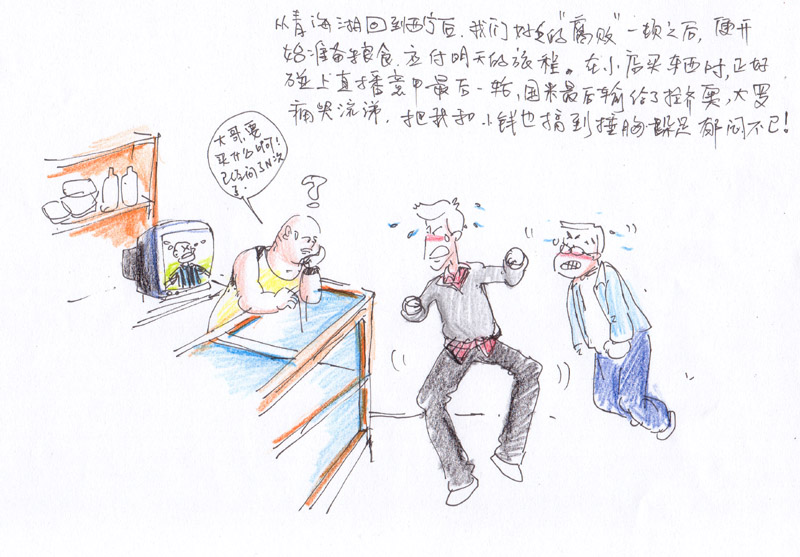 从青海湖回到西宁后,我们好好的"腐败"一顿之后,便开
始准备粮食.应付明天的旅程。在小店买东西时,正好
碰上直播意甲最后一轮,国米最后输给了拉齐奥,大罗
痛哭流涕.把我和小钱也搞到捶胸跺足郁闷不已!
大哥,要
买什么呀!
已经问了N次
了.
?